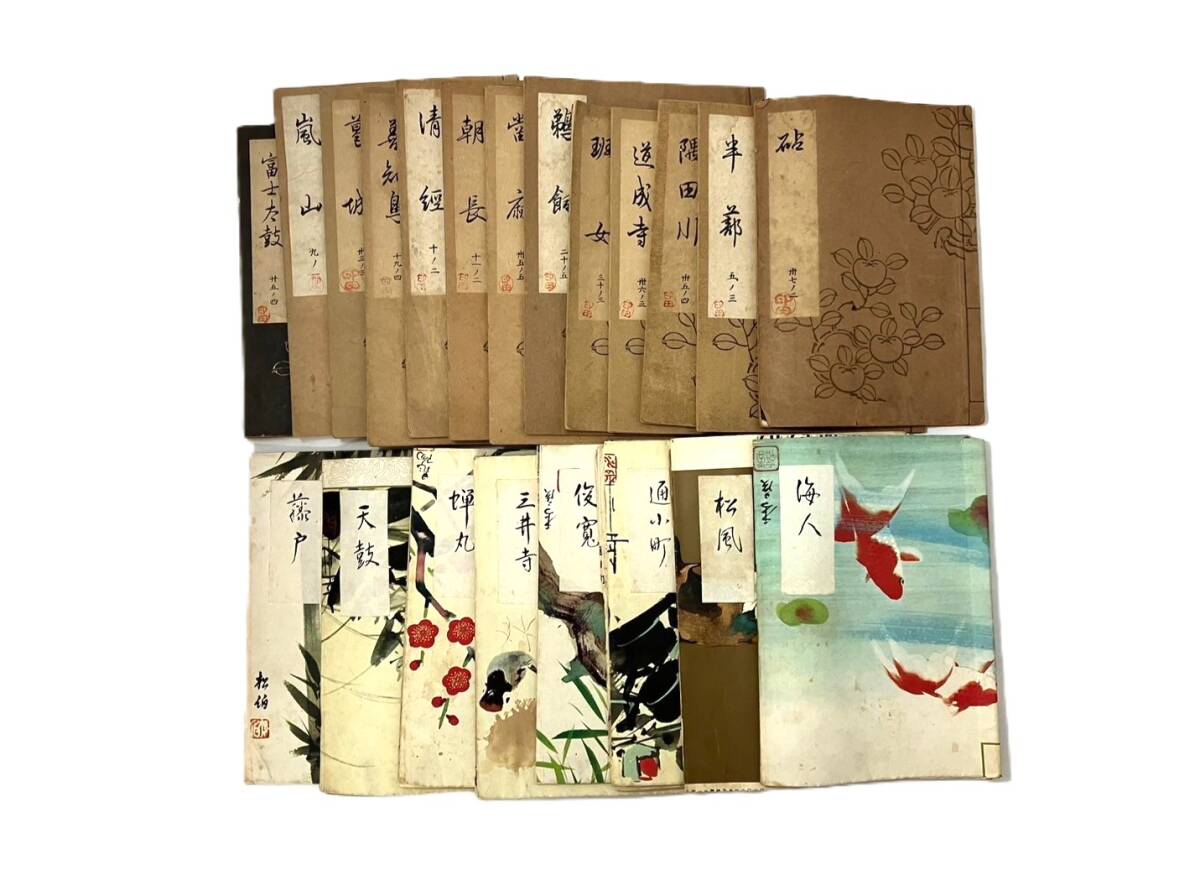 富士太鼓
卅五ノ四
嵐山
九ノ
葛城
善知鳥
十九ノ四
清經
十ノ二
朝長
十一ノ二
當麻
卅五ノ五
鵜飼
二十ノ五
班女
三十ノ三
道成寺
卅六ノ三
隅田川
卅五ノ四
半蔀
五ノ三
砧
卅七ノ二
藤戸
松伯
天鼓
蝉丸
三井寺
俊寛
通小町
松風
海人